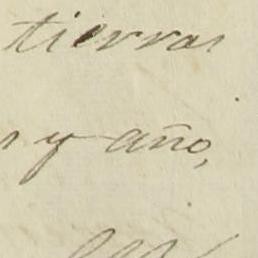 tierras
y año,